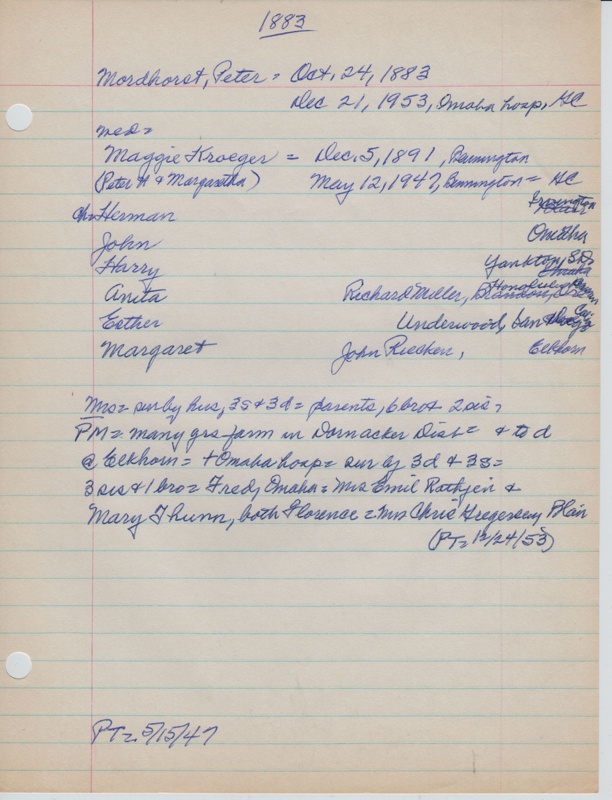 1883
Mordhorst, Peter = Oct. 24, 1883
Dec 21, 1953, Omaha hosp, HC
med =
Maggie Kroeger = Dec. 5, 1891, Bennington
(Peter H & Margaretha) May 12, 1947, Bennington = HC
ch = Herman Irvington
John Omaha
Harry Yankton, S.D.
Anita Richard Miller, Brandon,
Esther Underwood, San Diego, Ca.
Margaret John Riecken, Elkhorn
Mrs = sur by hus, 3s & 3d = parents, 6 bro & 2 sis =
PM = many yrs farm in Dornacker Dist = & to d
@ Elkhorn = + Omaha hosp = sur by 3d & 3s =
3 sis & 1 bro = Fred, Omaha = Mrs Emil Rathjen &
Mary Thunn, both Florence = Mrs Chris Gregersen, Plain
(PT = 12/24/53)
PT = 5/15/47